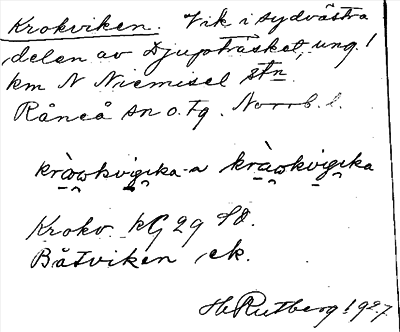 Krokviken. Vik i sydvästra
delen av Djupträsket, ung. 1
km N Niemisel stn
Råneå sn o. tg. Norrb. l.
Krokv. kG 29 SO.
Båtviken ek.
H Rutberg 1927